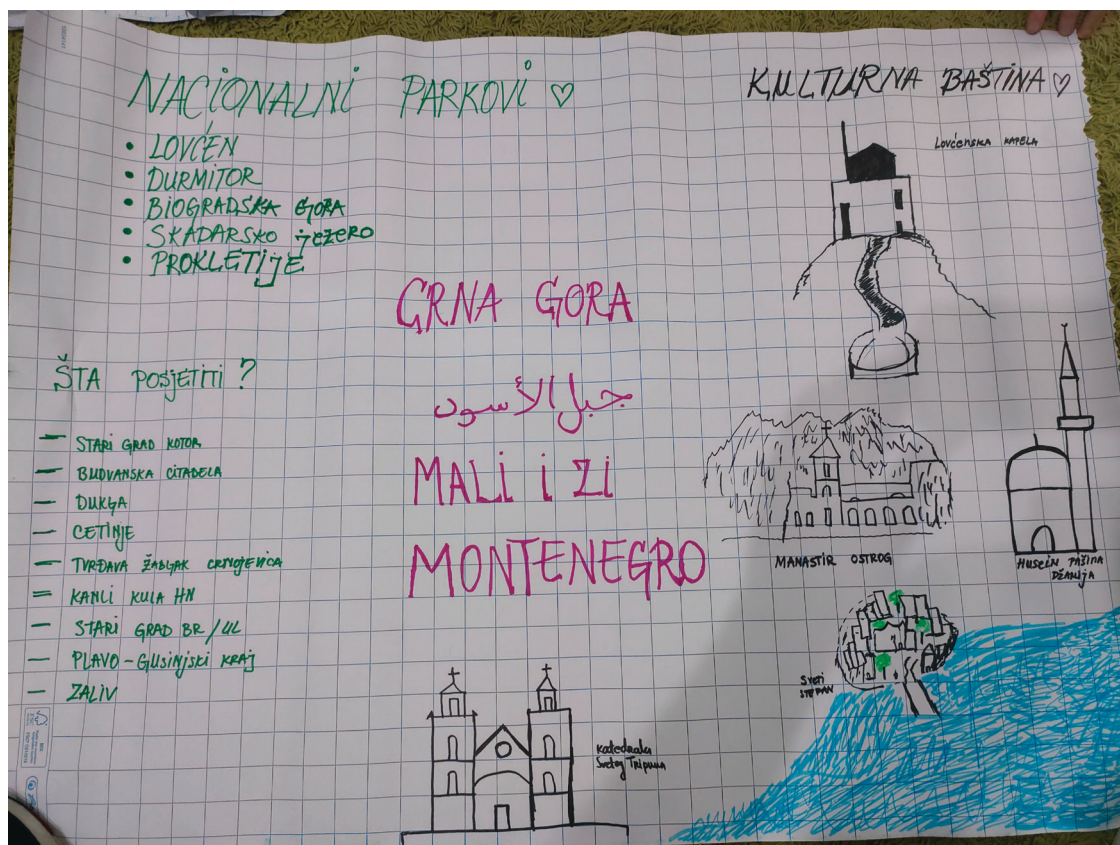 NACIONALNI PARKOVI ♡
• LOVĆEN
• DURMITOR
• BIOGRADSKA GORA
• SKADARSKO JEZERO
• PROKLETIJE
ŠTA POSJETITI ?
— STARI GRAD KOTOR
— BUDVANSKA CITADELA
— DUKLJA
— CETINJE
— TVRĐAVA ŽABLJAK CRNOJEVIĆA
— KANLI KULA HN
— STARI GRAD BR/UL
— PLAVO-GUSINJSKI KRAJ
— ZALIV
CRNA GORA
جبل الأسود
MALI I ZI
MONTENEGRO
KULTURNA BAŠTINA ♡
Lovćenska KAPELA
MANASTIR OSTROG
HUSEIN PAŠINA
DŽAMIJA
SVETI
STEFAN
Katedrala
Svetog Tripuna